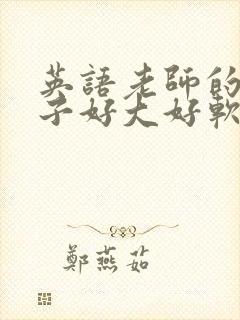 英語老師的
子好大好軟
鄭燕茹